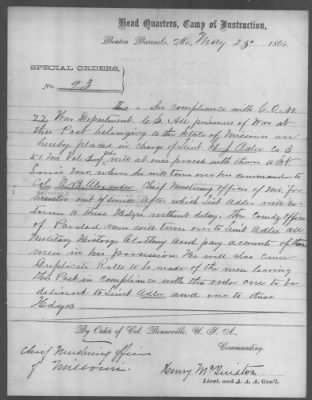 Head Quarters, Camp of Instruction,
Benton Barracks, Mo., May 25th 186
SPECIAL ORDERS,
No. 93
I. In compliance with G.O. No
77 War Department C.S. All prisoners of War at
this Post belonging to the State of Missouri are
hereby placed in charge of Lieut Adler Co G
51 Mo Vol Inf will at once proceed with them to St
Louis Mo, where he will turn over his command to
Col. A.B. Alexander Chief Mustering officer of Mo, for
muster out of Service After which Lieut Adler will re-
turn to these Hdqrs without delay. The Comdg Officer
of Paroled men will turn over to Lieut Adler all
Military History, Clothing and pay accounts of these
men in his possession. He will also cause
Duplicate Rolls to be made of the men leaving
this Post in compliance with this order one to be
delivered to Lieut Adler and one to these
Hdqrs
By Order of Col. Bonneville, U. S. A.
Commanding.
Chief Mustering Officer
of Missouri.
Henry
Lieut. and A. A. A. Gen'l.